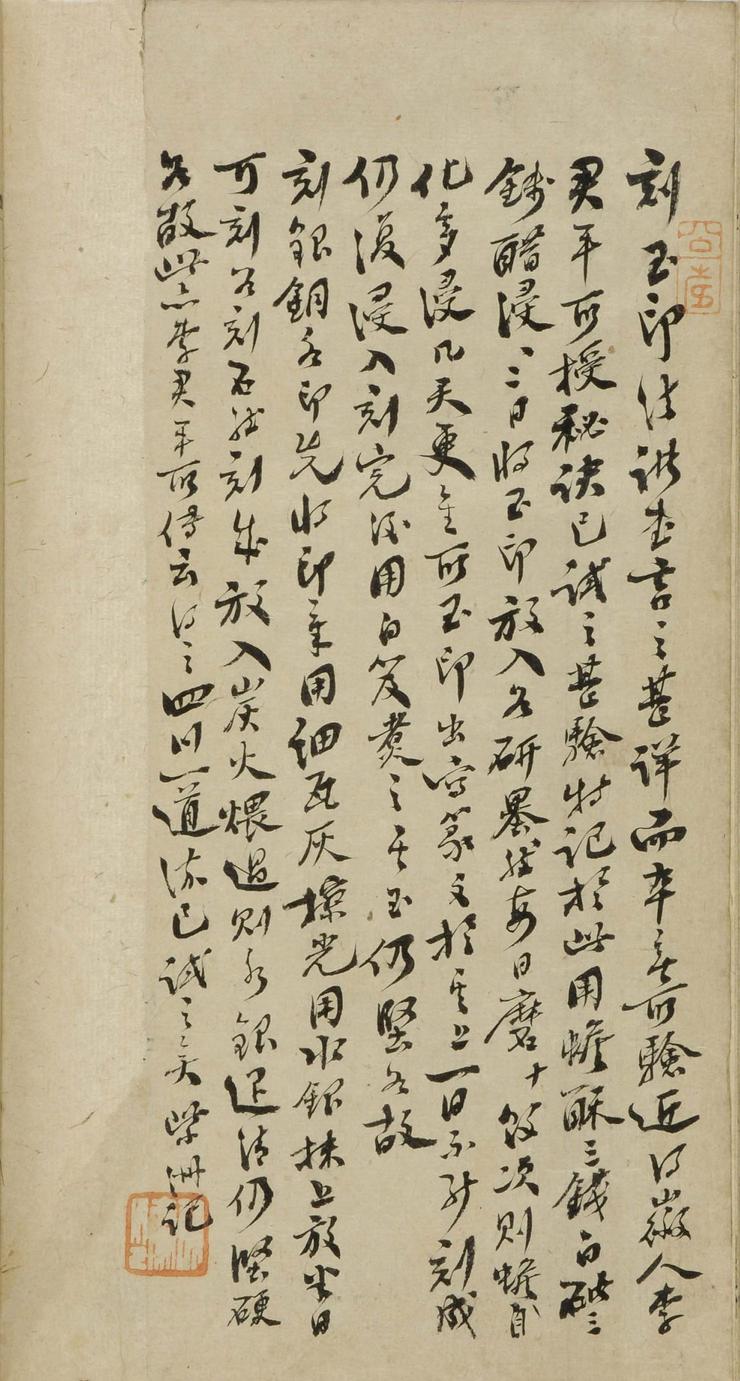 刻玉印法諸書言之甚詳而卒無所驗近得徽人李
君平所授秘訣已試之甚驗特記於此用蟾酥三錢白礬三
錢醋浸一二日將玉印放入如研墨然每日磨十數次則蟾自
化多浸几天更 所玉印出寫篆文於其上一日不能刻成
仍復浸入刻完後用白笈煮之其玉仍堅如故
刻銀銅如印先將印章用細瓦灰擦光用水銀抹上放半日
可刻如刻石然刻成放入炭火煨過則水銀退清仍堅硬
如故此亦李君平所傳云得之四川一道流已試之矣 洲記